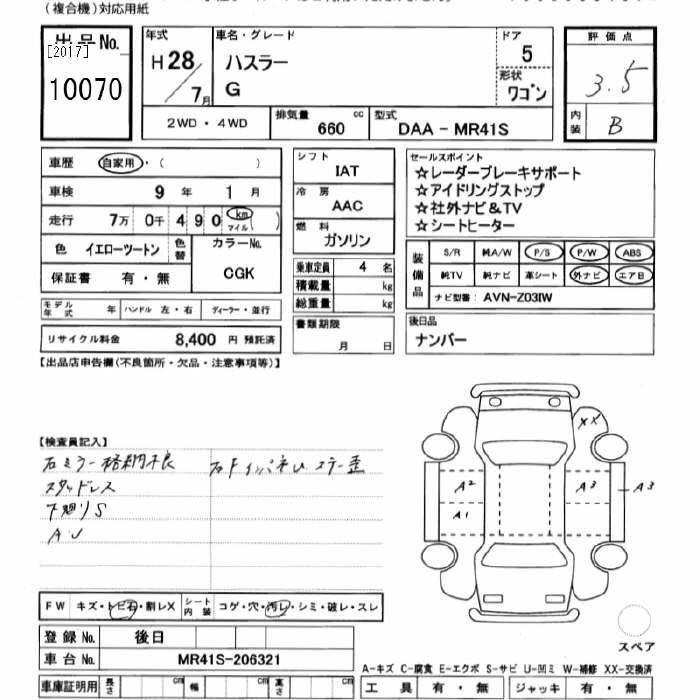 (複合機)対応用紙
出品No.
[2017]
10070
年式
H28/7月
車名・グレード
ハスラー
G
ドア
5
形状
ワゴン
評価点
3.5
内装
B
2WD・4WD
排気量 cc
660
型式
DAA - MR41S
車歴 自家用・( )
車検 9年 1月
走行 7万 0千 4 9 0 km マイル ( )
色 イエローツートン 色替
カラーNo.
CGK
保証書 有・無
モデル年式 年 ハンドル 左・右 ディーラー・並行
リサイクル料金 8,400 円 預託済
シフト
IAT
冷房
AAC
燃料
ガソリン
乗車定員 4 名
積載量 kg
総重量 kg
書類期限
月 日
セールスポイント
☆レーダーブレーキサポート
☆アイドリングストップ
☆社外ナビ&TV
☆シートヒーター
装備品
S/R 純A/W P/S P/W ABS
純TV 純ナビ 革シート 外ナビ エアB
ナビ型番: AVN-Z03IW
後日品
ナンバー
【出品店申告欄(不良箇所・欠品・注意事項等)】
【検査員記入】
右ミラー格納不良
スタッドレス
下廻りS
A.U
XX
A2 A3 A3
A1
FW キズ・トビ石・割レX シート内装 コゲ・穴・汚レ・シミ・破レ・スレ
登録No. 後日
車台No. MR41S-206321
スペア
A-キズ C-腐食 E-エクボ S-サビ U-凹ミ W-補修 XX-交換済
車庫証明用 長さ cm 幅 cm 高さ cm
工具 有・無 ジャッキ 有・無